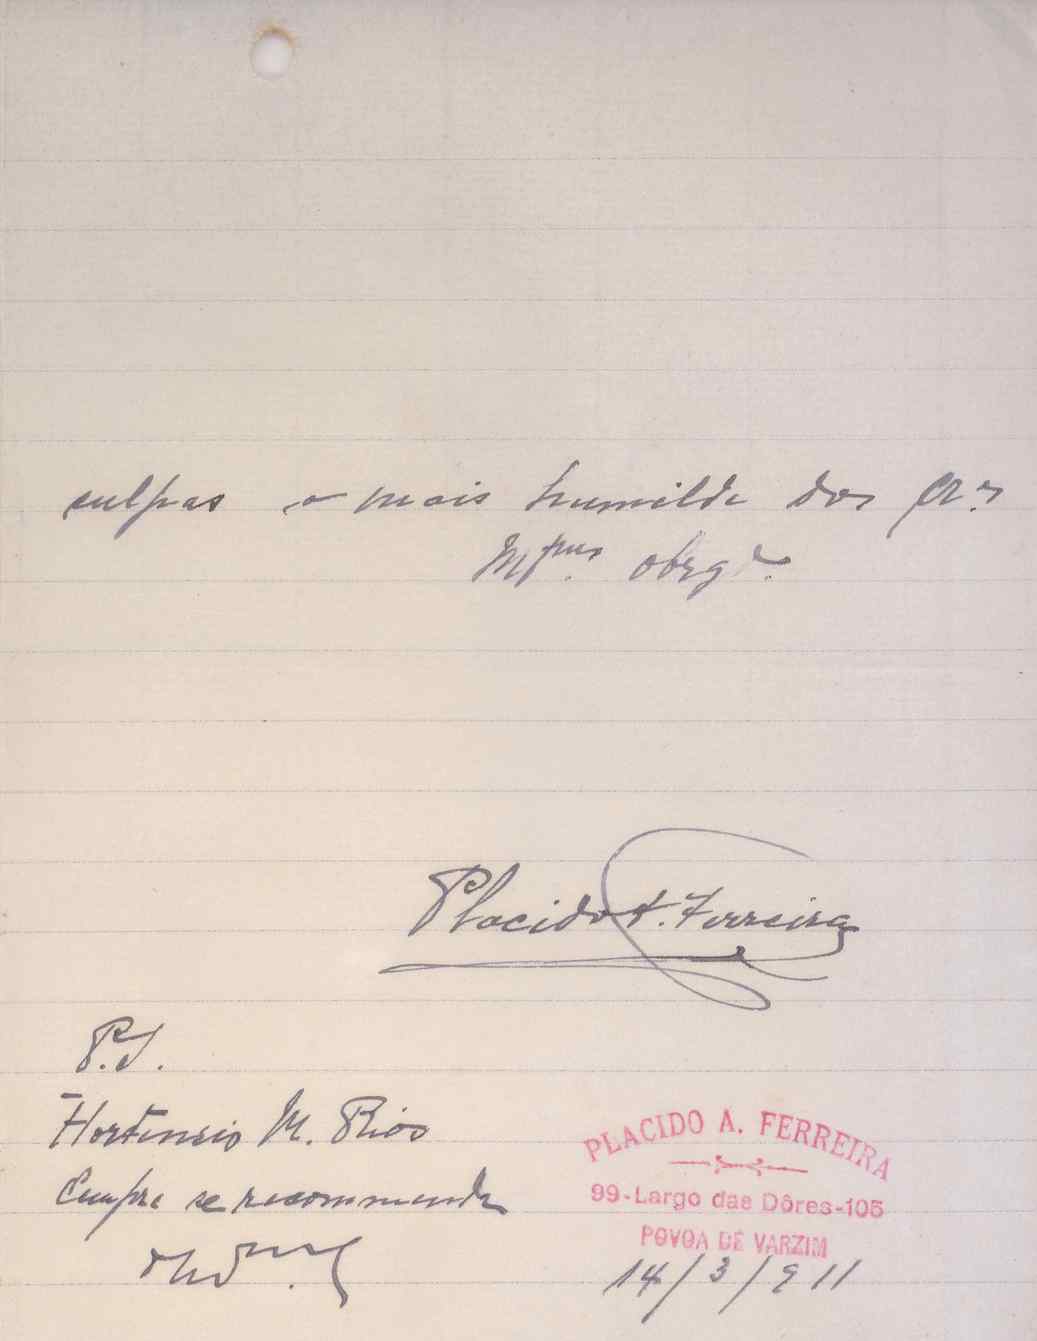 culpas o mais humilde dos
obrg.º
Placido A. Ferreira
P.S.
Hortensio M. Rios
Cumpre se recommenda
PLACIDO A. FERREIRA
99-Largo das Dôres-105
POVOA DE VARZIM
14/3/911